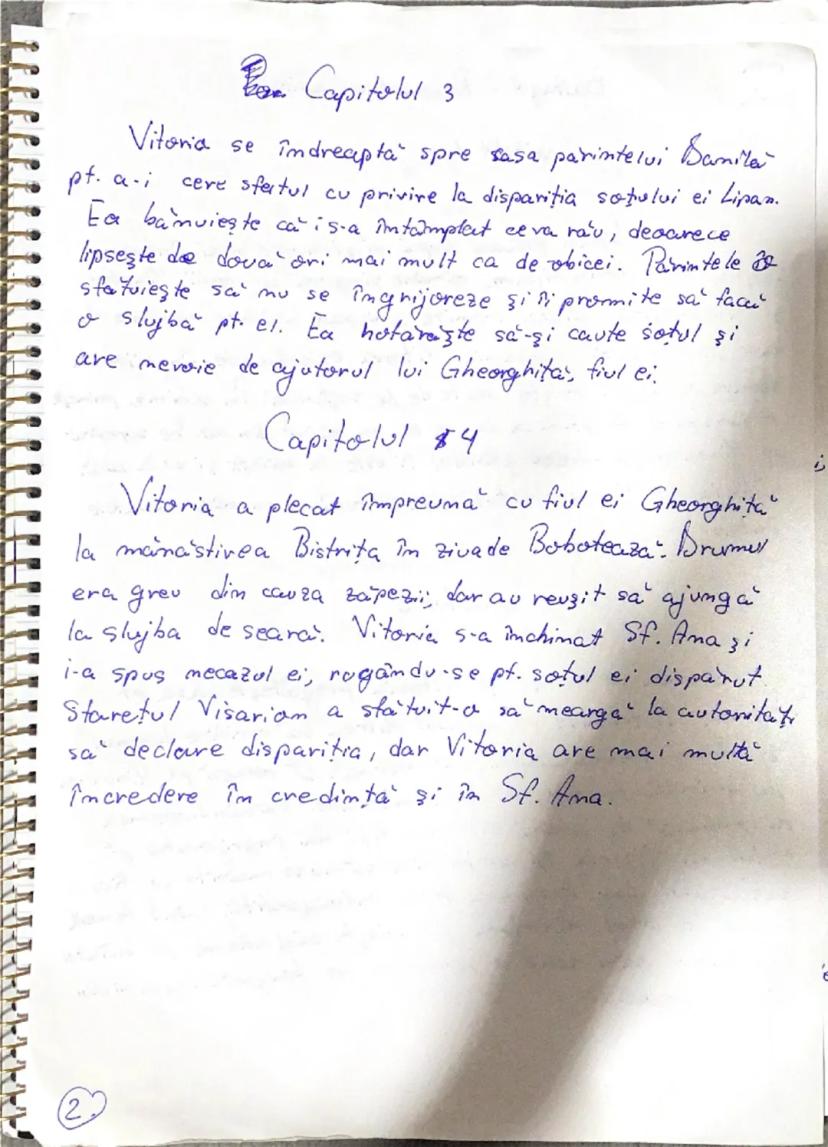 Capitolul 3
Vitoria se îndreaptă spre casa părintelui Danilă
pt. a-i cere sfatul cu privire la dispariția soțului ei Lipan.
Ea bănuiește că i s-a întâmplat ceva rău, deoarece
lipsește de două ori mai mult ca de obicei. Părintele
sfătuiește să nu se îngrijoreze și îi promite să facă
o slujbă pt. el. Ea hotărăște să-și caute soțul și
are nevoie de ajutorul lui Gheorghiță, fiul ei.
Capitolul 4
Vitoria a plecat împreună cu fiul ei Gheorghiță
la mănăstirea Bistrița în ziua de Bobotează. Drumul
era greu din cauza zăpezii, dar au reușit să ajungă
la slujba de seară. Vitoria s-a închinat Sf. Ana și
i-a spus necazul ei, rugându-se pt. soțul ei dispărut.
Starețul Visarion a sfătuit-o să meargă la autorități
să declare dispariția, dar Vitoria are mai multă
încredere în credință și în Sf. Ana.
2.